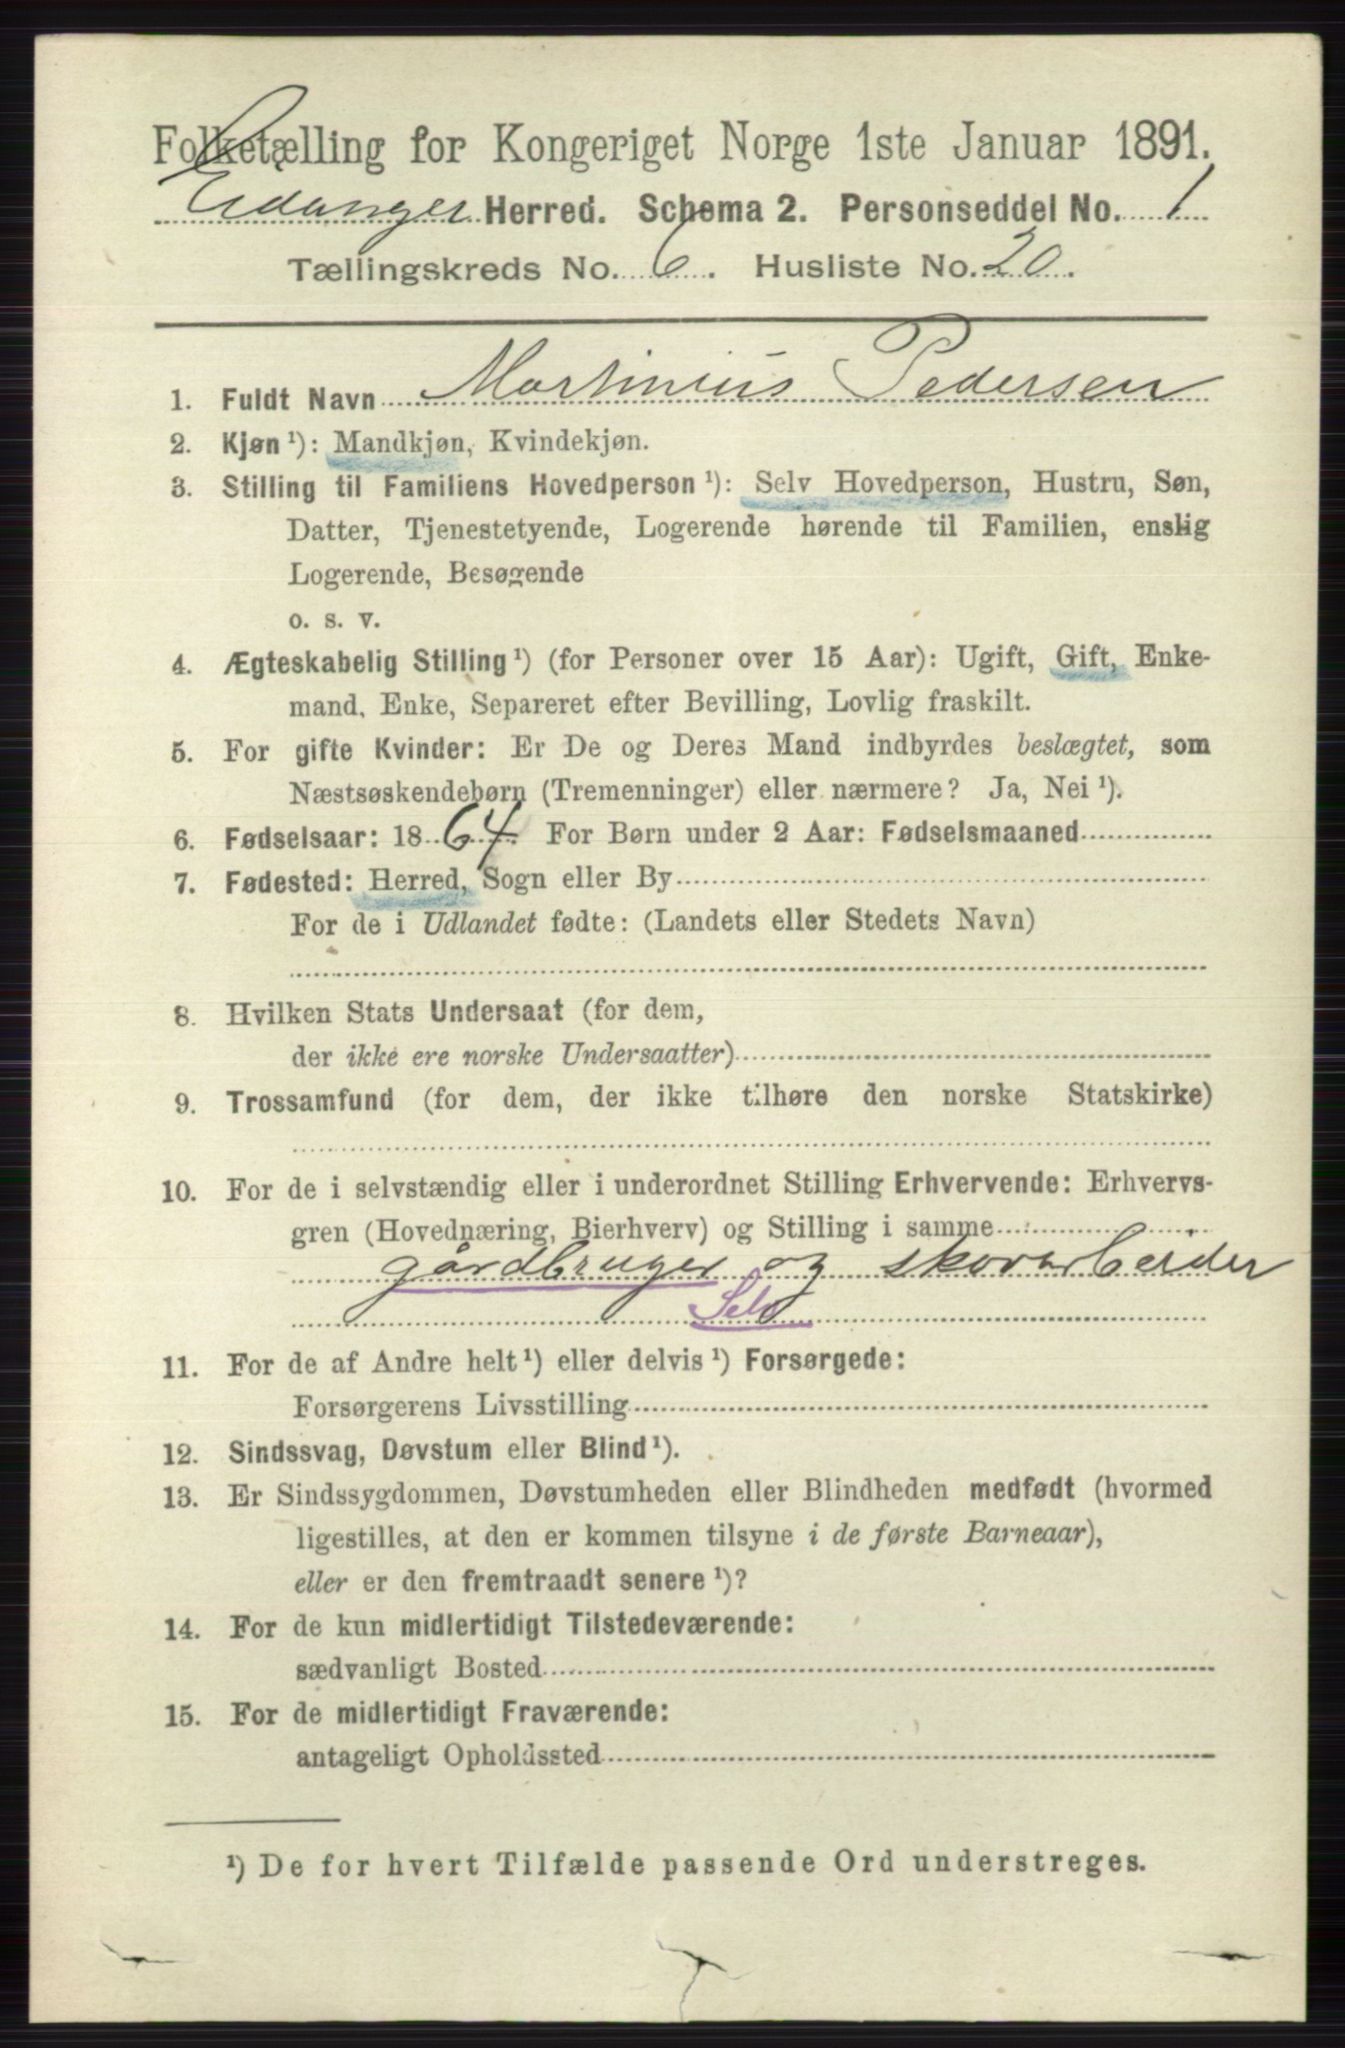 Folketælling for Kongeriget Norge 1ste Januar 1891.
Eidanger Herred. Schema 2. Personseddel No. 1
Tællingskreds No. 6. Husliste No. 20.
1. Fuldt Navn Martinius Pedersen
2. Kjøn ¹): Mandkjøn, Kvindekjøn.
3. Stilling til Familiens Hovedperson ¹): Selv Hovedperson, Hustru, Søn,
Datter, Tjenestetyende, Logerende hørende til Familien, enslig
Logerende, Besøgende
o. s. v.
4. Ægteskabelig Stilling ¹) (for Personer over 15 Aar): Ugift, Gift, Enke-
mand, Enke, Separeret efter Bevilling, Lovlig fraskilt.
5. For gifte Kvinder: Er De og Deres Mand indbyrdes beslægtet, som
Næstsøskendebørn (Tremenninger) eller nærmere? Ja, Nei ¹).
6. Fødselsaar: 1864. For Børn under 2 Aar: Fødselsmaaned
7. Fødested: Herred, Sogn eller By
For de i Udlandet fødte: (Landets eller Stedets Navn)
8. Hvilken Stats Undersaat (for dem,
der ikke ere norske Undersaatter)
9. Trossamfund (for dem, der ikke tilhøre den norske Statskirke)
10. For de i selvstændig eller i underordnet Stilling Erhvervende: Erhvervs-
gren (Hovednæring, Bierhverv) og Stilling i samme
gårdbruger og skovarbeider
Selv
11. For de af Andre helt ¹) eller delvis ¹) Forsørgede:
Forsørgerens Livsstilling
12. Sindssvag, Døvstum eller Blind ¹).
13. Er Sindssygdommen, Døvstumheden eller Blindheden medfødt (hvormed
ligestilles, at den er kommen tilsyne i de første Barneaar),
eller er den fremtraadt senere ¹)?
14. For de kun midlertidigt Tilstedeværende:
sædvanligt Bosted
15. For de midlertidigt Fraværende:
antageligt Opholdssted
¹) De for hvert Tilfælde passende Ord understreges.